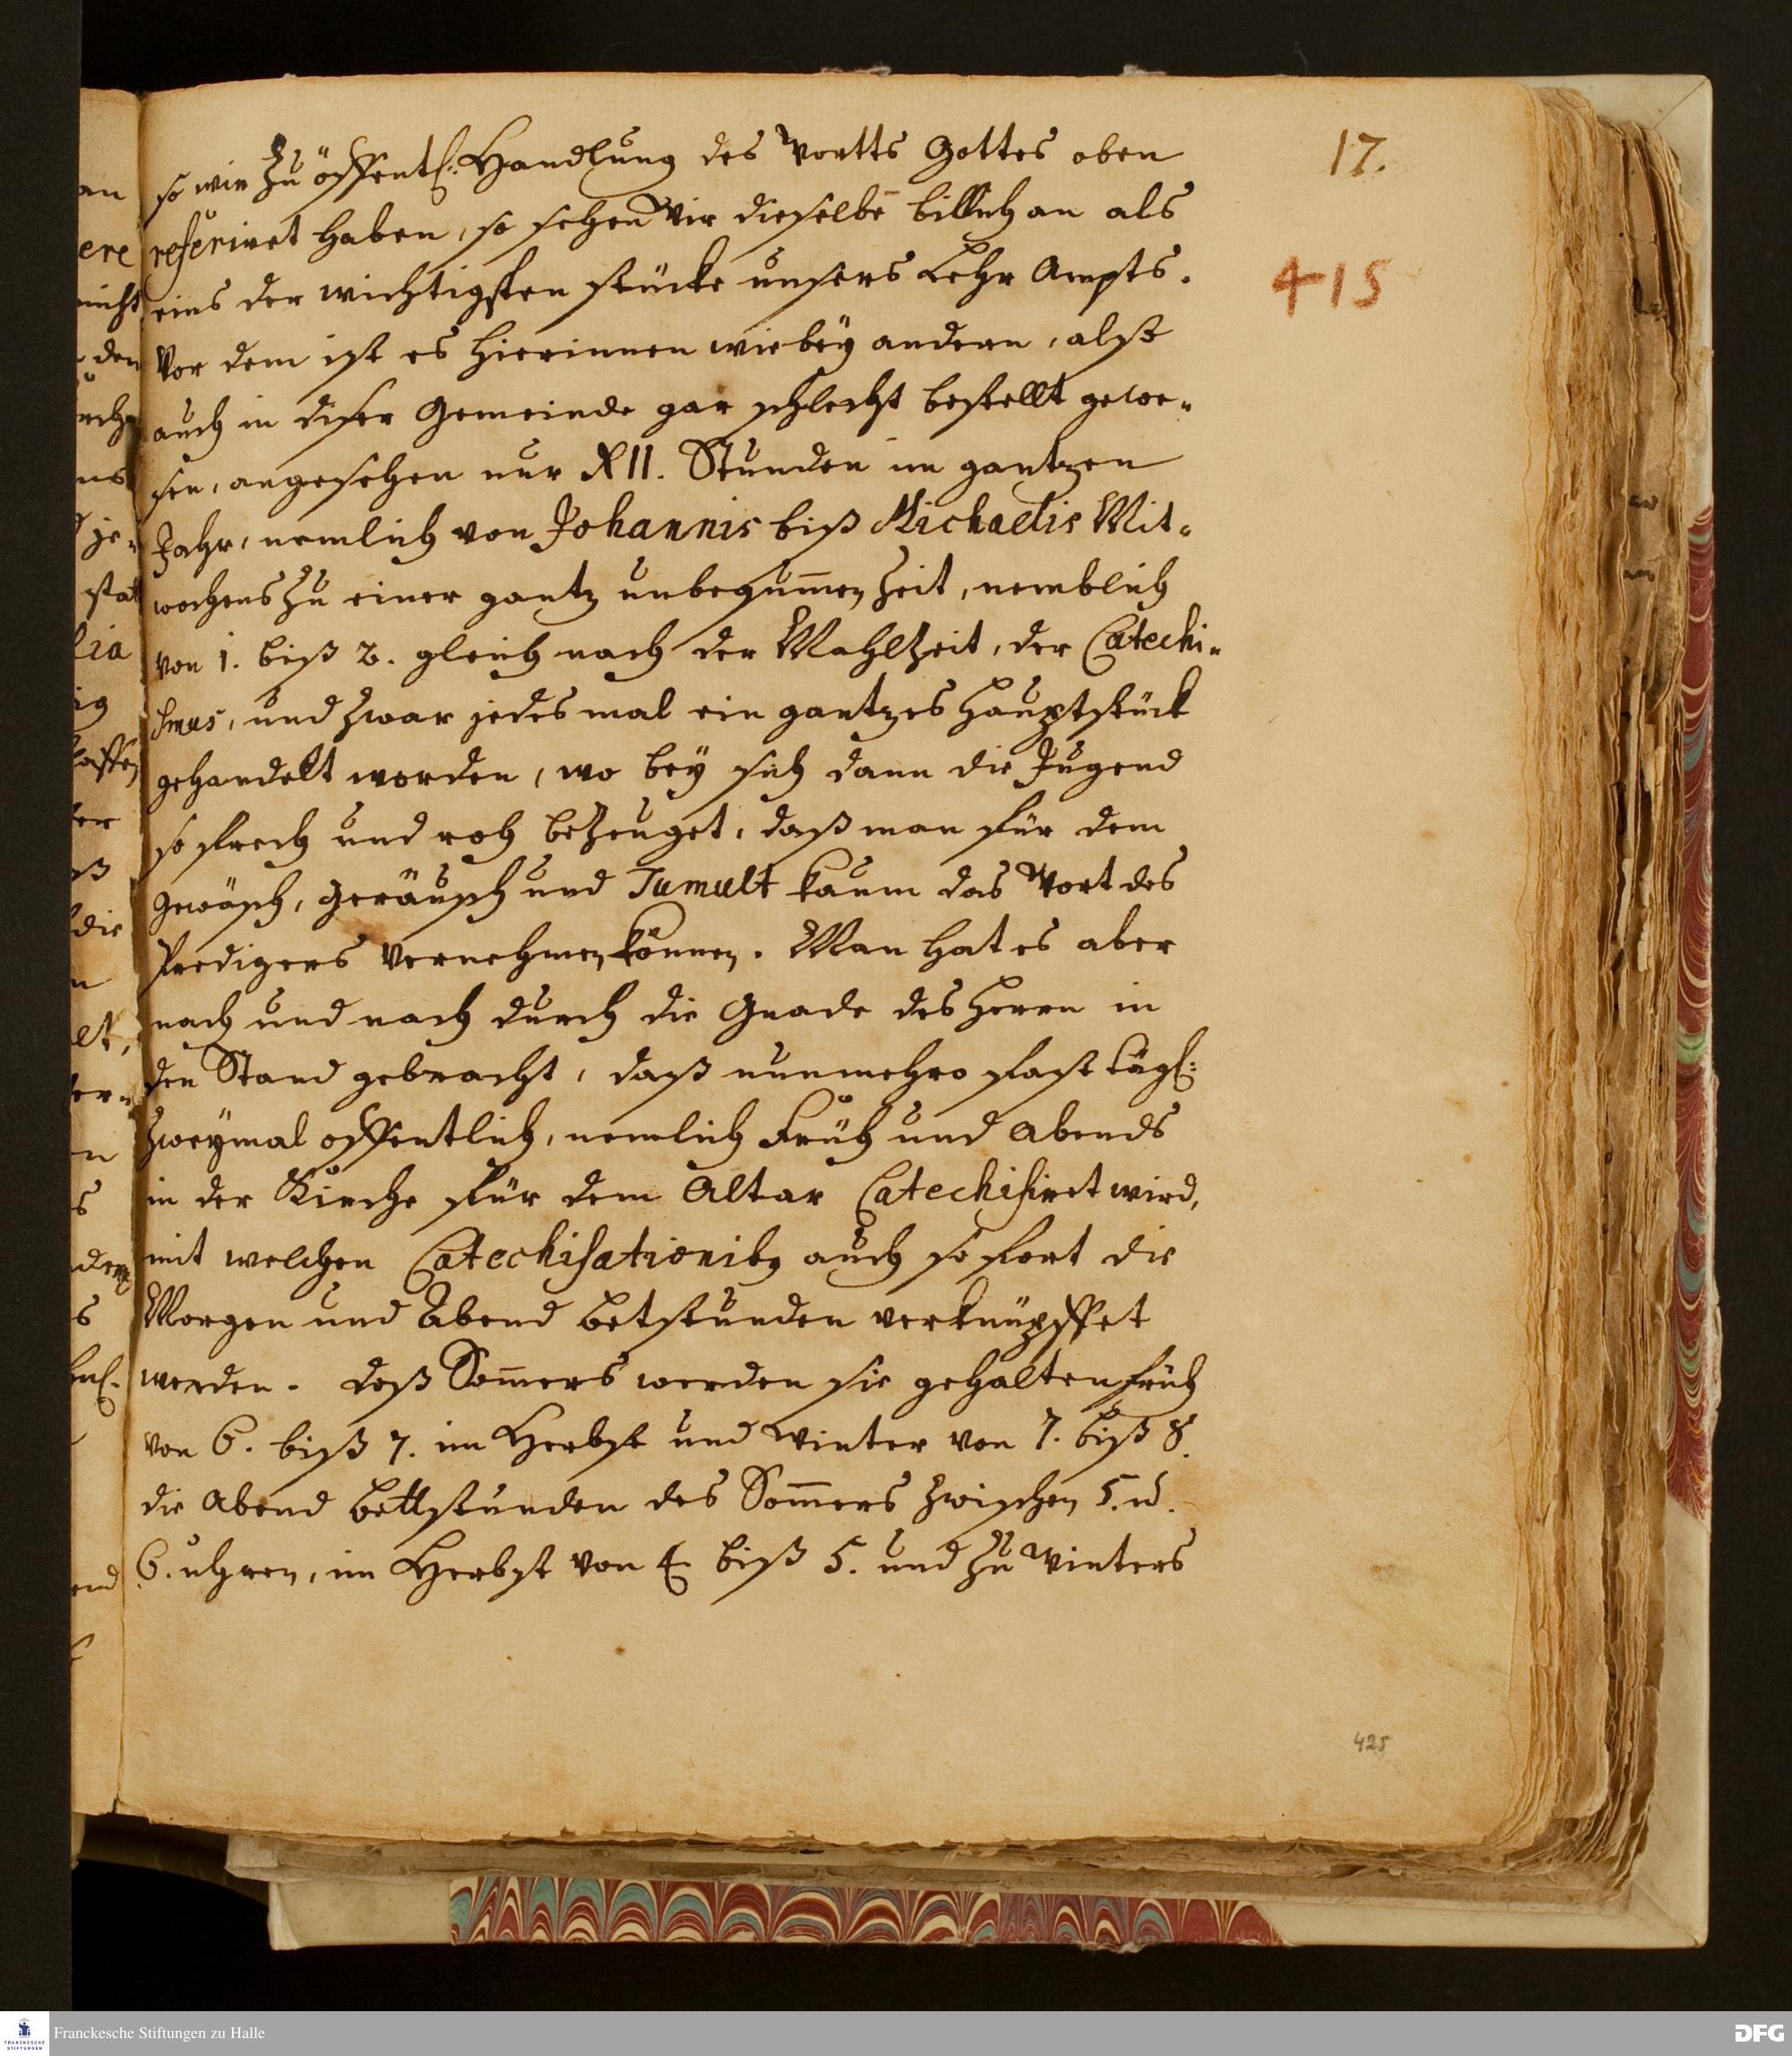 17.
415
so wir zu öffentl: Handlung des Wortts Gottes oben
referiret haben, so sehen Wir dieselbē billich an als
eins der wichtigsten stücke unsers Lehr Ampts.
Vor dem ist es hierinnen wie bey andern, also
auch in diser Gemeinde gar schlecht bestellt gewe-
sen, angesehen nur XII. Stunden im gantzen
Jahr, nemlich von Johannis biß Michaelis Mit-
wochens zu einer gantz unbequem̄en Zeit, nemblich
von 1. biß 2. gleich nach der Mahlzeit, der Catechi-
smus, und zwar jedes mal ein gantzes Hauptstück
gehandelt worden, wo bey sich dann die Jugend
so frech und roh bezeuget, daß man für dem
Gewäsch, Geräusch und Tumult kaum das Wort des
Predigers vernehmen können. Man hat es aber
nach und nach durch die Gnade des Herrn in
den Stand gebracht, daß nunmehro fast tägl:
zweymal offentlich, nemlich Früh und Abends
in der Kirche für dem Altar Catechisiret wird,
mit welchen Catechisationibg auch so fort die
Morgen und Abend betstunden verknüpffet
werden. Deß Som̄ers werden sie gehalten früh
von 6. biß 7. im Herbst und Winter von 7. biß 8.
die Abend bettstunden des Som̄ers zwischen 5. u.
6. uhren, im Herbst von 4 biß 5. und zu Winters
425
Franckesche Stiftungen zu Halle
DFG